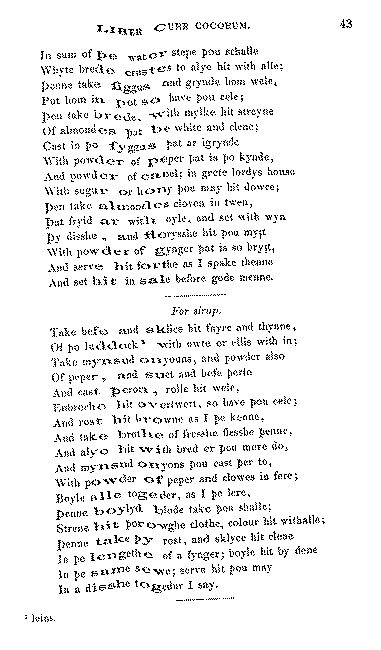 LIBER CURE COCORUM. 43
In sum of þe water stepe þou schalle
Whyte brede crustes to alye hit with alle;
þenne take fyggus and grynde hom wele,
Put hom in pot so have þou cele;
þen take brede, with mylke hit streyne
Of almondes þat be white and clene;
Cast in þo fyggus þat ar igrynde
With powder of peper þat is þo kynde,
And powder of canel; in grete lordys house
With sugur or hony þou may hit dowce;
þen take almondes cloven in twen,
þat fryid ar with oyle, and set with wyn
þy disshe, and florysshe hit þou myȝt
With powder of gynger þat is so bryȝt,
And serve hit forthe as I spake thenne
And set hit in sale before gode menne.
For sirup.
Take befe and sklice hit fayre and thynne,
Of þo luddock¹ with owte or ellis with in;
Take mynsud onyouns, and powder also
Of peper, and suet and befe þerto
And cast þeron, rolle hit wele,
Enbroche hit overtwert, so have þou cele;
And rost hit browne as I þe kenne,
And take brothe of fresshe flesshe þenne,
And alye hit with bred er þou more do,
And mynsud onyons þou cast þer to,
With powder of peper and clowes in fere;
Boyle alle togeder, as I þe lere,
þenne boylyd blode take þou shalle;
Strene hit þorowghe clothe, colour hit withalle;
þenne take þy rost, and sklyce hit clene
In þe lengethe of a fynger; boyle hit by dene
In þe same sewe; serve hit þou may
In a disshe togedur I say.
¹ loins.